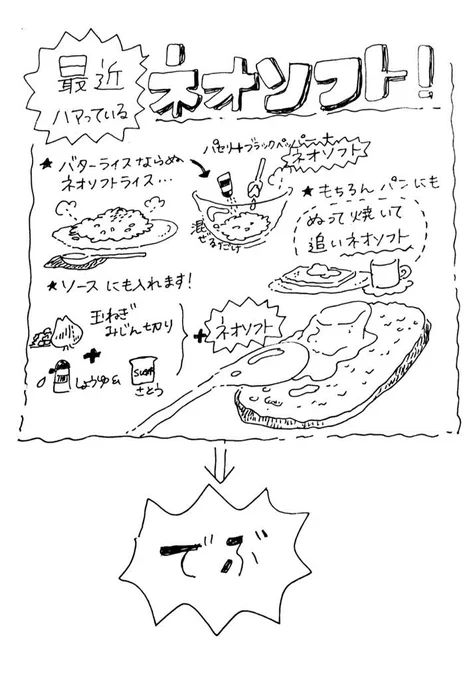 最近
ハマっている
ネオソフト!
★ バターライスならぬ
ネオソフトライス…
パセリ+ブラックペッパー+
ネオソフト
混
ぜるだけ
★ もちろん パンにも
ぬって焼いて
追いネオソフト
★ ソースにも入れます!
玉ねぎ
みじん切り
+
ネオソフト
+
しょうゆ&
SUGAR
さとう
でぶ